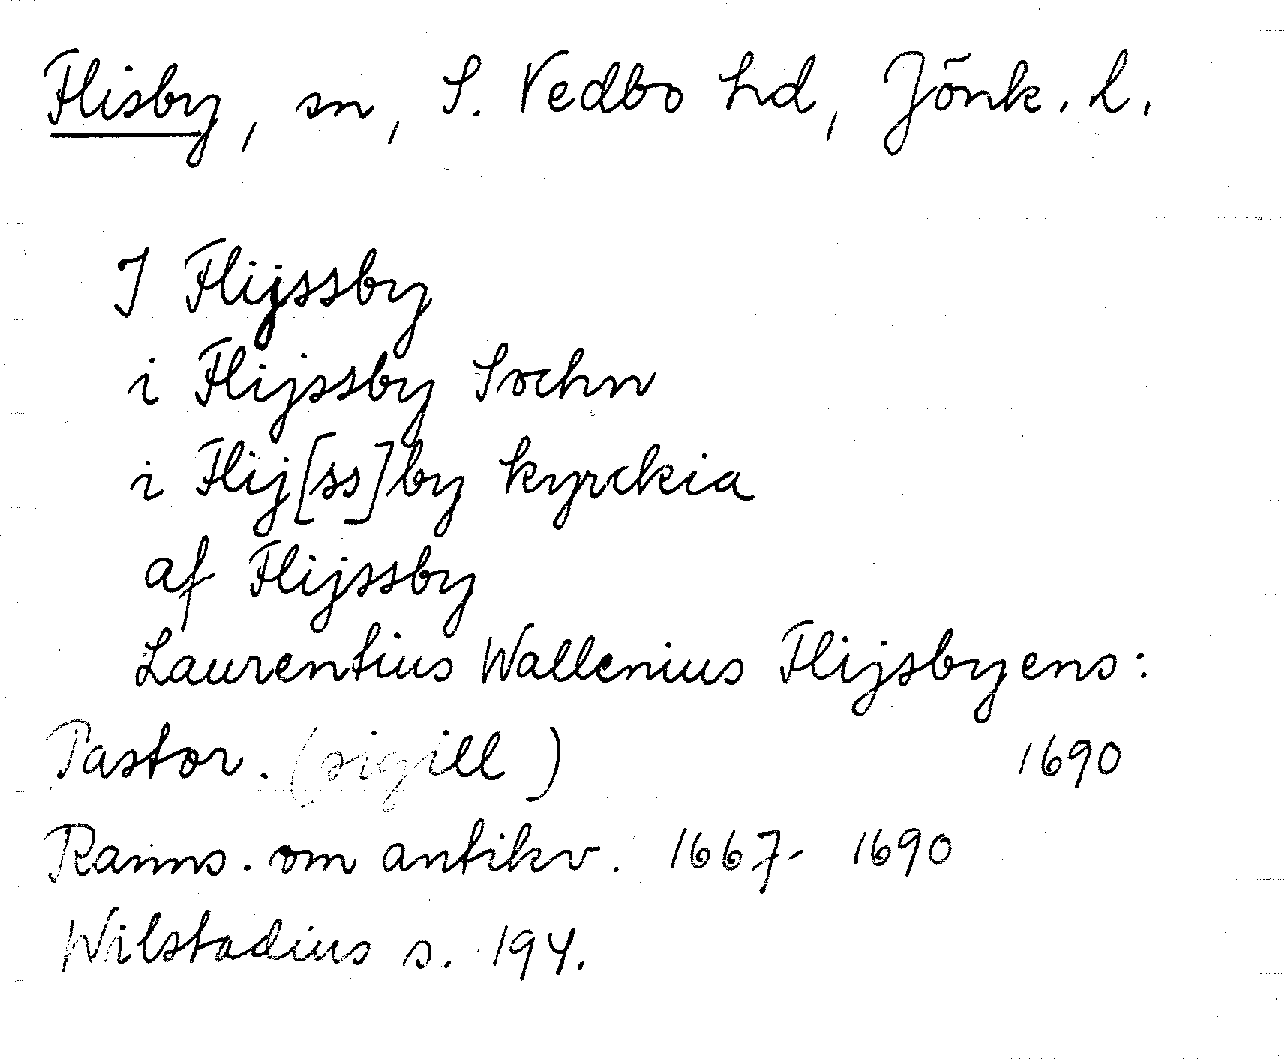 Flisby, sn, S. Vedbo hd, Jönk. l.
I Flijssby
i Flijssby Sochn
i Flij[ss]by kyrckia
af Flijssby
Laurentius Wallenius Flijsbyens:
Pastor. (sigill) 1690
Ranns. om antikv. 1667-1690
Wilstadius s. 194.